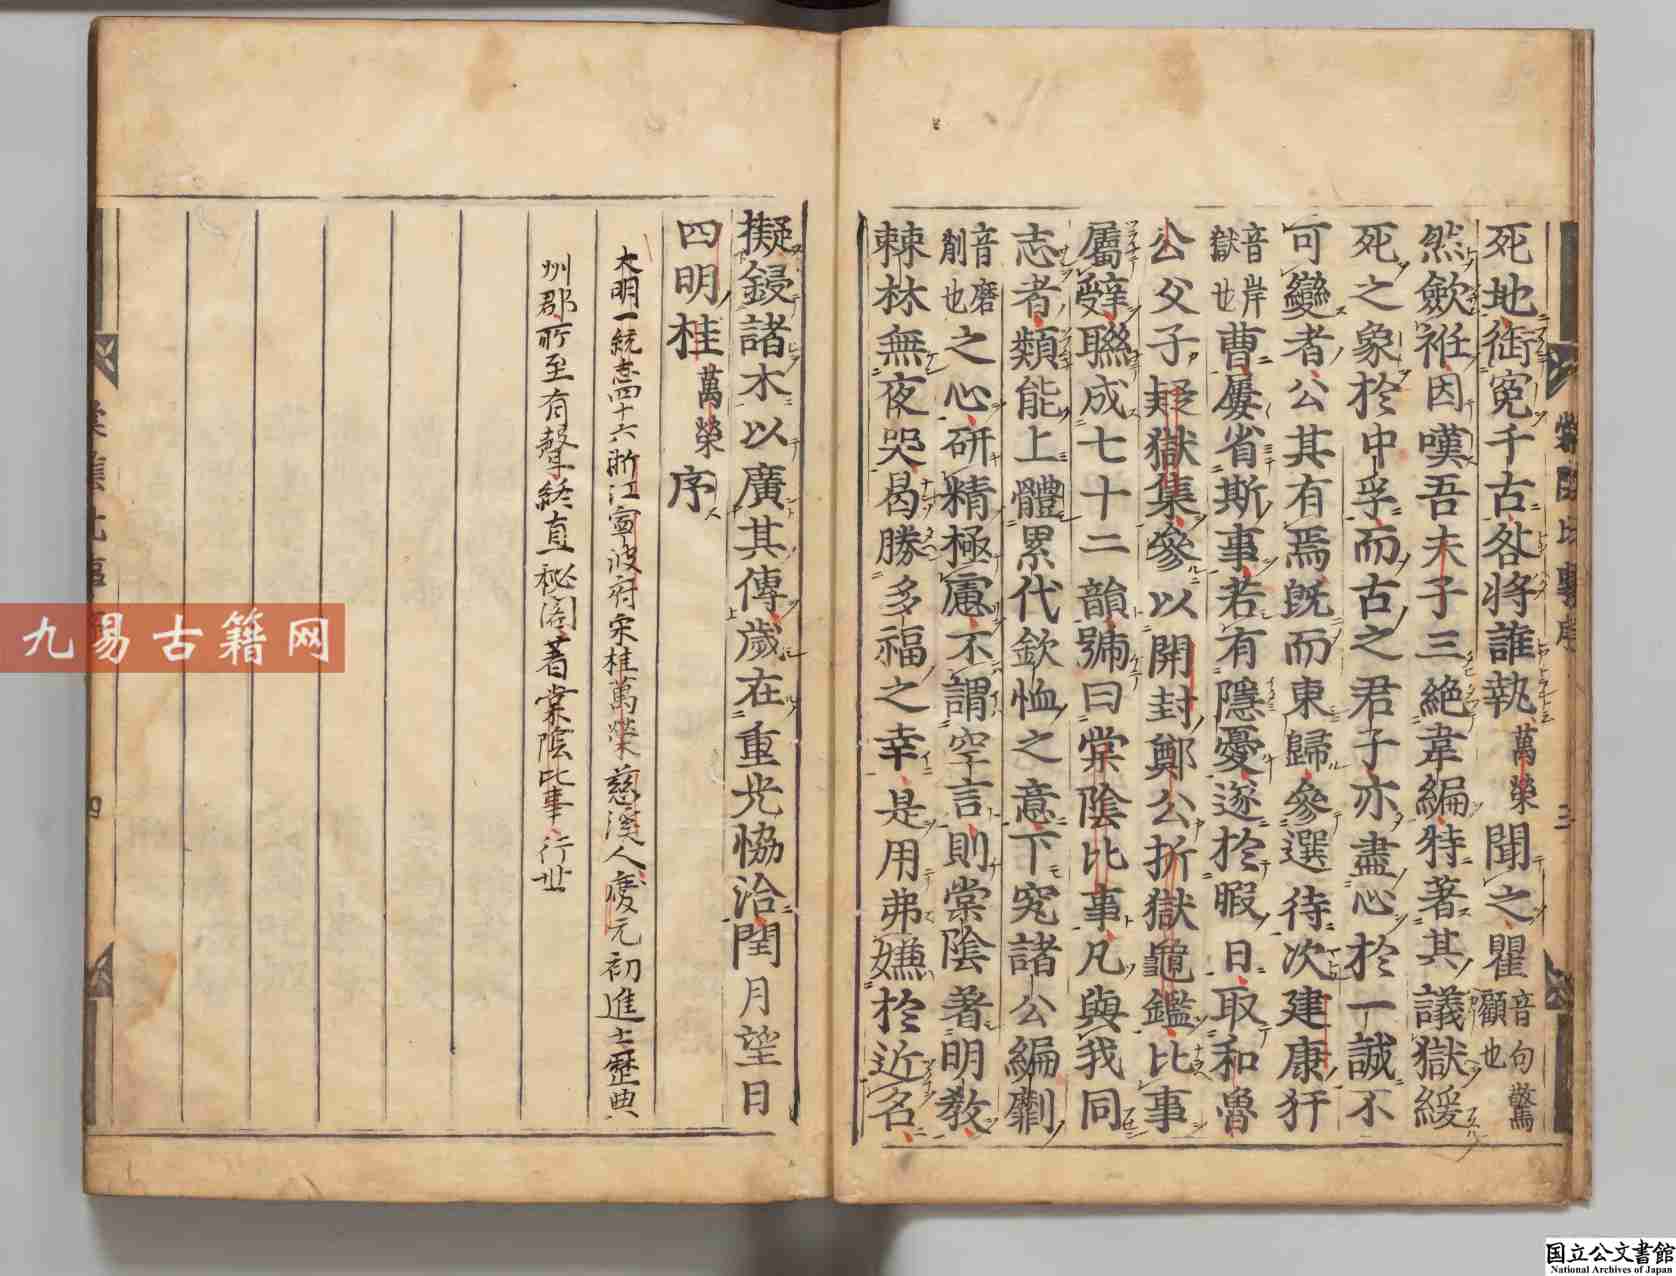 死地衘寃千古咎將誰執萬榮聞之瞿音句驚顧也
然斂袵因嘆吾夫子三絶韋編特著其議獄緩
死之象於中孚而古之君子亦盡心於一誠不
可變者公其有焉旣而東歸參選待次建康犴
音岸獄也曹屢省斯事若有隱憂遂於暇日取和魯
公父子疑獄集參以開封鄭公折獄龜鑑比事
屬辭聯成七十二韻號曰棠陰比事凡與我同
志者類能上體累代欽恤之意下究諸公編劘
音磨削也之心研精極慮不謂空言則棠陰著明敎
棘林無夜哭曷勝多福之幸是用弗嫌於近名
擬鋟諸木以廣其傳歲在重光恊洽閏月望日
四明桂萬榮序
大明一統志四十六浙江寧波府宋桂萬榮慈溪人慶元初進士歷典
州郡所至有聲終直秘閣著棠陰比事行世
棠陰比事序
三
四
九易古籍网
国立公文書館
National Archives of Japan